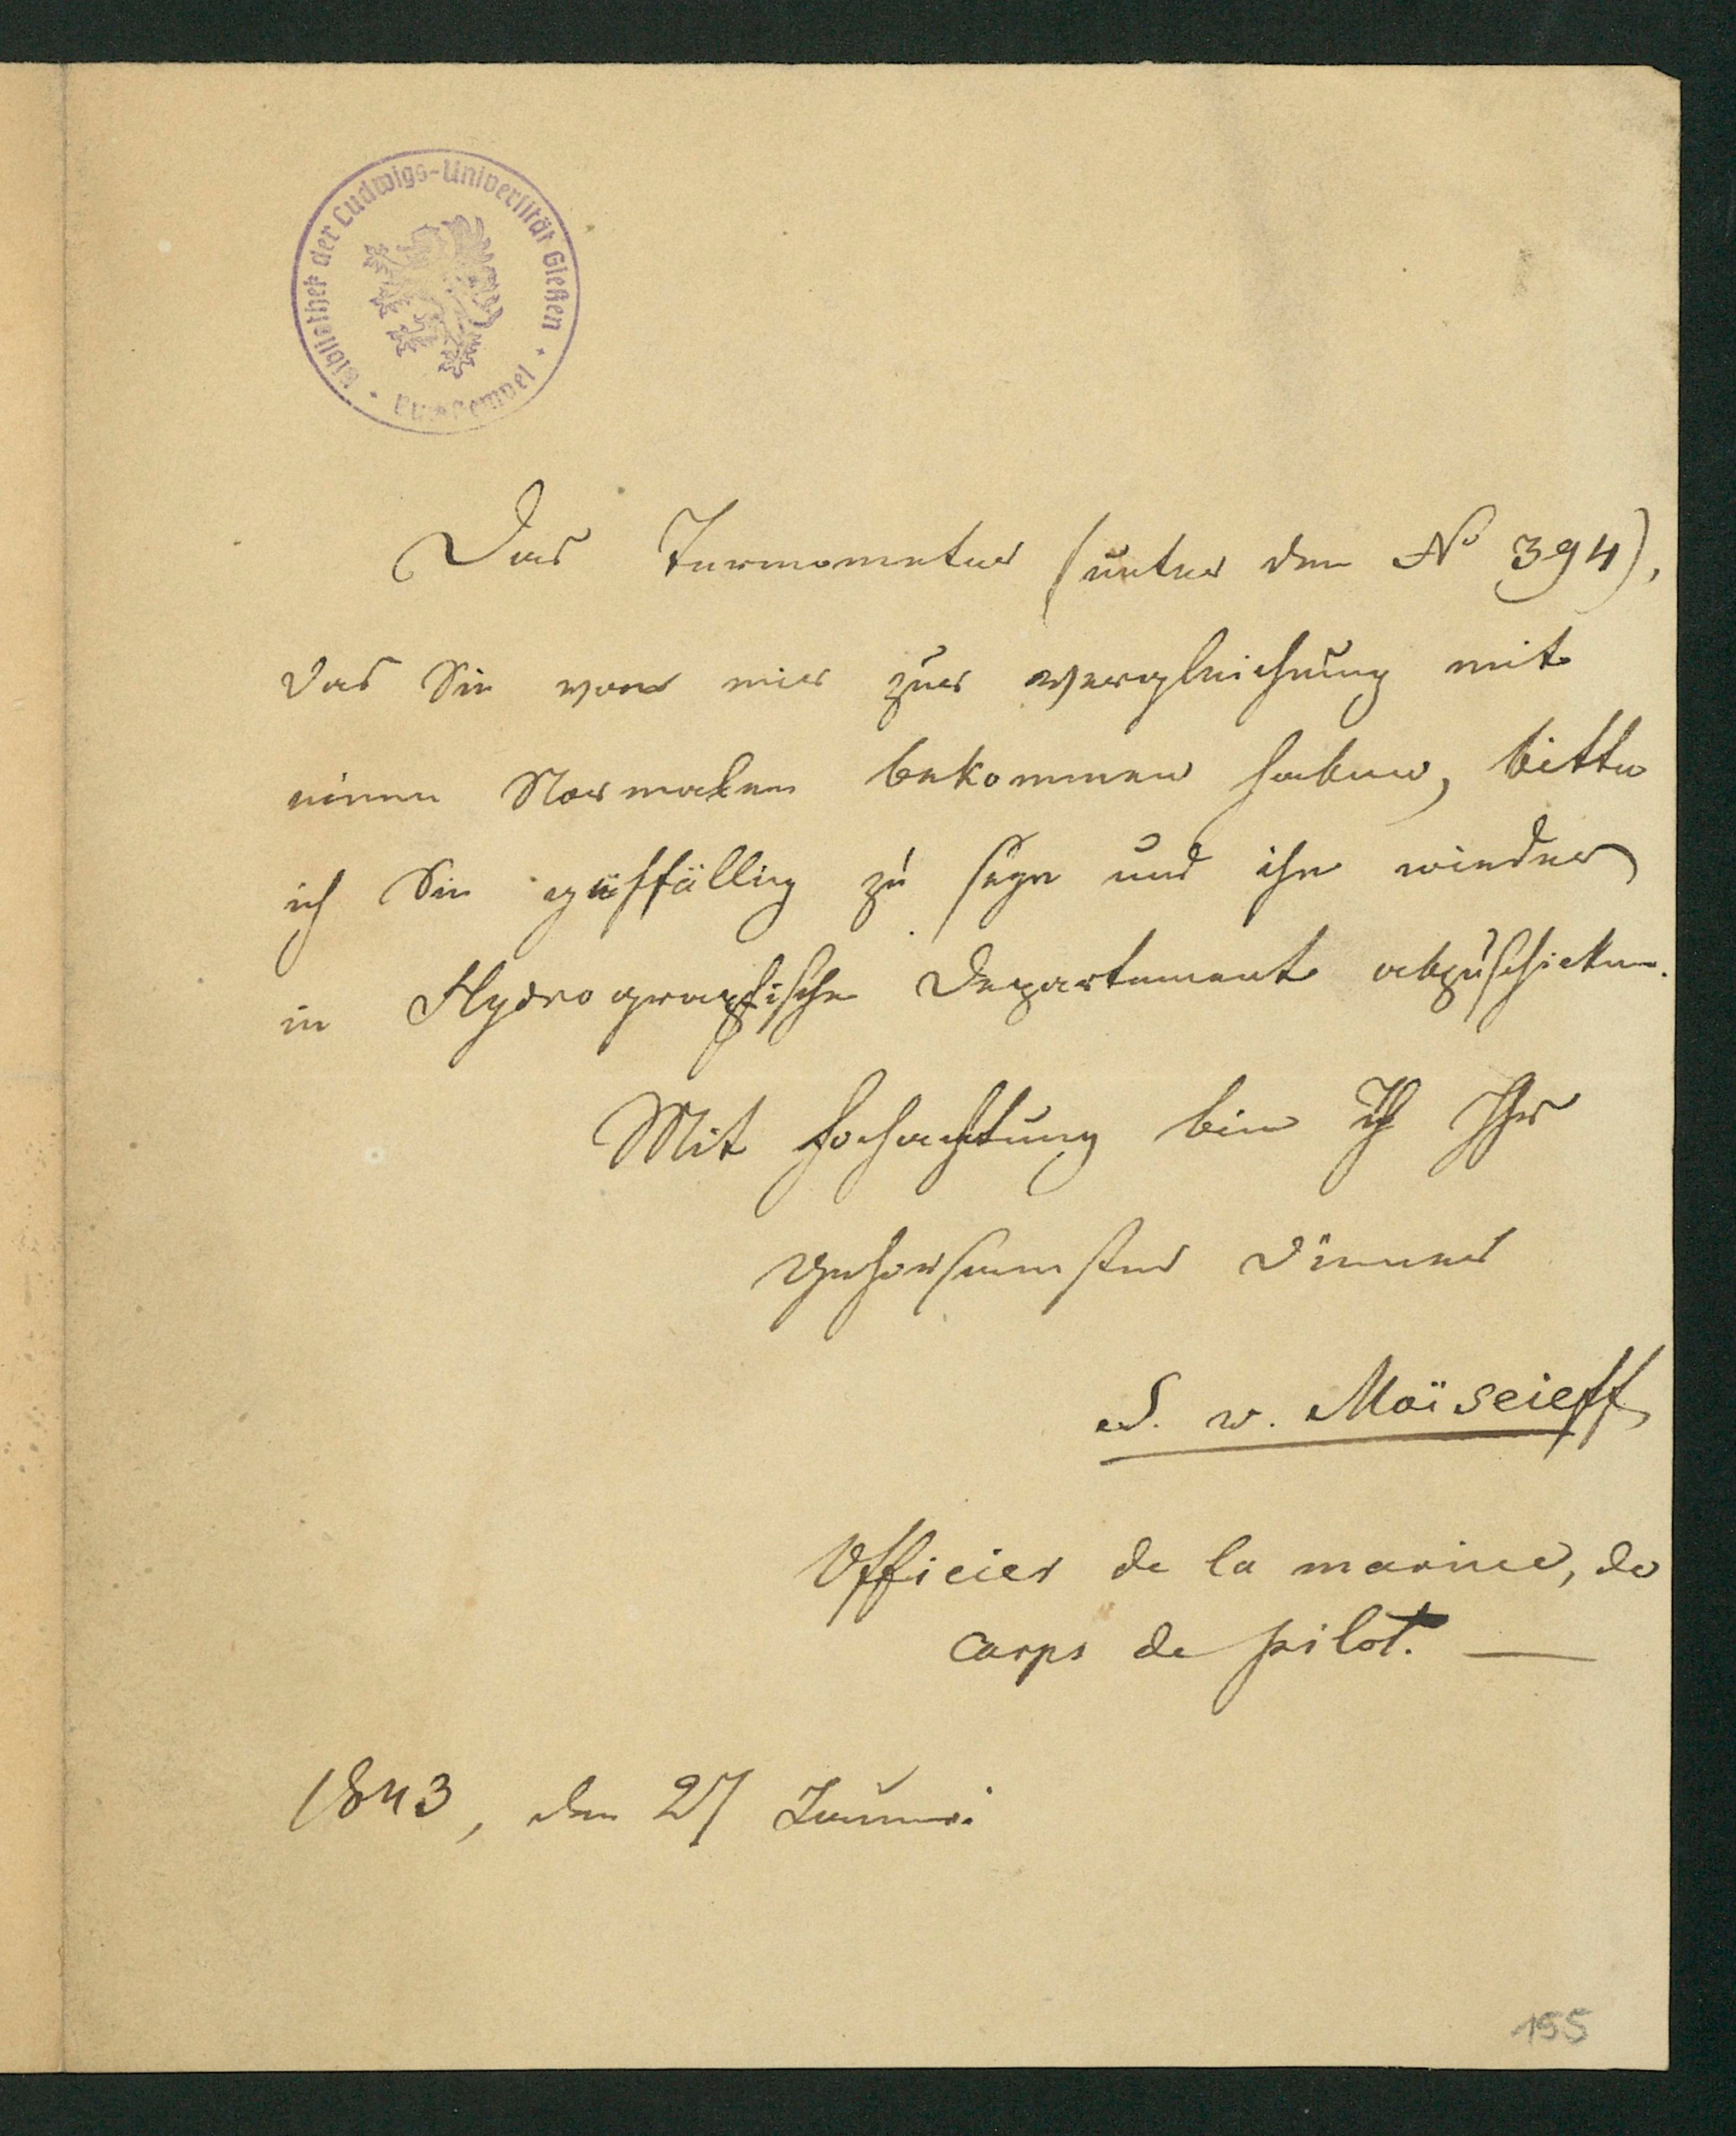 Bibliothek der Ludwigs-Universität Gießen
Das Termometer (unter den No 394),
das Sie von mir zur vergleichung mit
einen Normalen bekommen haben, bitte
ich Sie gefällig zu seyn und ihn wieder
in Hydrographische Departement abzuschicken.
Mit Hochachtung bin Ich Ihr
Gehorsamster Diener
S. v. Moïseieff
Officier de la marine, de
corps de pilot. —
1843, den 27 Januar.
155